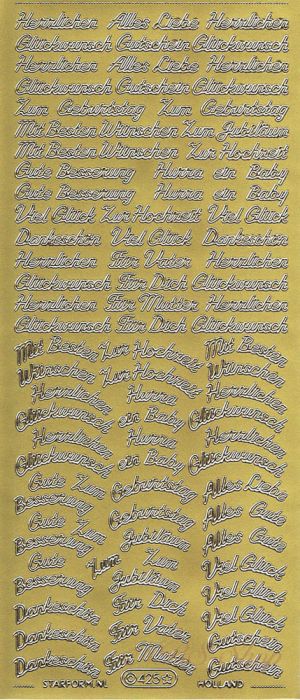 Herrlichen Alles Liebe Herrlichen
Glückwunsch Gutschein Glückwunsch
Herrlichen Alles Liebe Herrlichen
Glückwunsch Gutschein Glückwunsch
Zum Geburtstag Zum Geburtstag
Mit Besten Wünschen Zum Jubiläum
Mit Besten Wünschen Zur Hochzeit
Gute Besserung Hurra ein Baby
Gute Besserung Hurra ein Baby
Viel Glück Zur Hochzeit Viel Glück
Dankeschön Viel Glück Dankeschön
Herrlichen Für Vater Herrlichen
Glückwunsch Für Dich Glückwunsch
Herrlichen Für Mutter Herrlichen
Glückwunsch Für Dich Glückwunsch
Mit Besten Zur Hochzeit Mit Besten
Wünschen Zur Hochzeit Wünschen
Herrlichen Hurra Herrlichen
Glückwunsch ein Baby Glückwunsch
Herrlichen Hurra Herrlichen
Glückwunsch ein Baby Glückwunsch
Gute Zum Alles Liebe
Besserung Geburtstag
Gute Zum Alles Gute
Besserung Geburtstag Alles Gute
Gute Zum Jubiläum Viel Glück
Besserung Zum Jubiläum Viel Glück
Dankeschön Für Dich Viel Glück
Dankeschön Für Vater Gutschein
Dankeschön Für Mutter Gutschein
STARFORM.NL © 425 HOLLAND